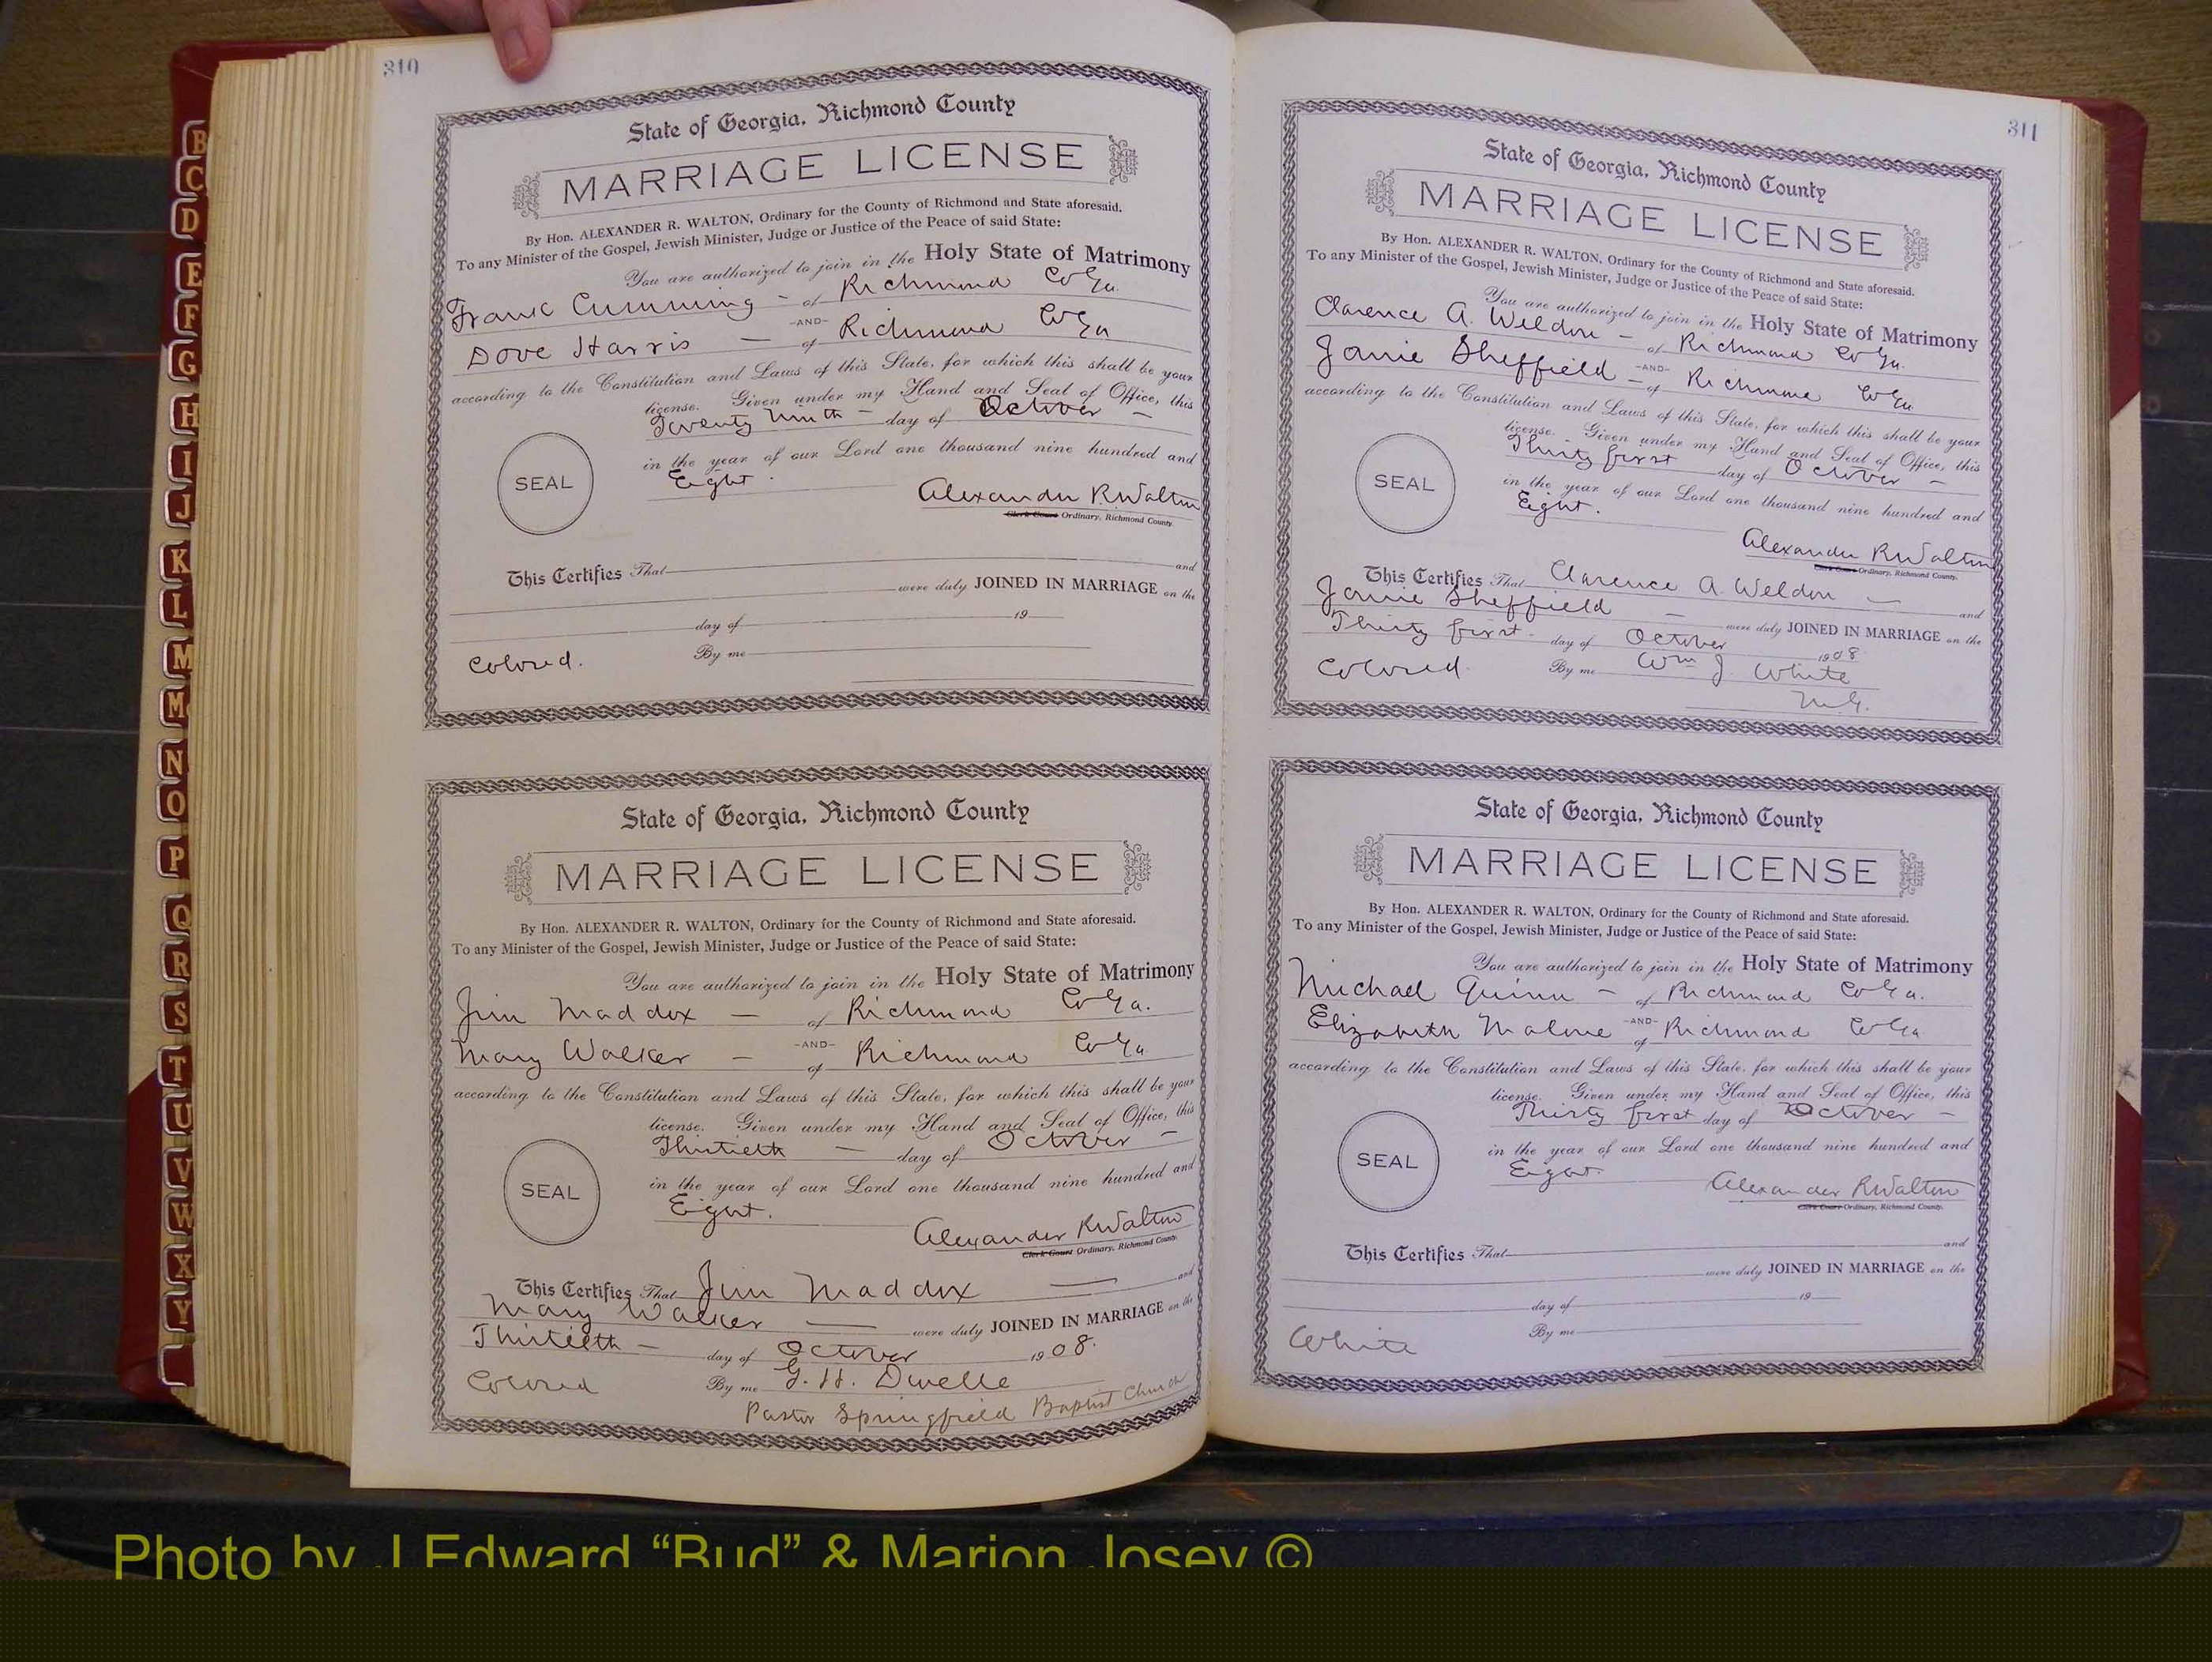 310
State of Georgia, Richmond County
MARRIAGE LICENSE
By Hon. ALEXANDER R. WALTON, Ordinary for the County of Richmond and State aforesaid.
To any Minister of the Gospel, Jewish Minister, Judge or Justice of the Peace of said State:
You are authorized to join in the Holy State of Matrimony
Frank Cumming - of Richmond Co Ga.
-AND-
Dove Harris - of Richmond Co Ga
according to the Constitution and Laws of this State, for which this shall be your
license. Given under my Hand and Seal of Office, this
Twenty Ninth - day of October -
in the year of our Lord one thousand nine hundred and
Eight.
SEAL
Alexander R Walton
Clerk Court Ordinary, Richmond County.
This Certifies That and
were duly JOINED IN MARRIAGE on the
day of 19
Colored. By me
State of Georgia, Richmond County
MARRIAGE LICENSE
By Hon. ALEXANDER R. WALTON, Ordinary for the County of Richmond and State aforesaid.
To any Minister of the Gospel, Jewish Minister, Judge or Justice of the Peace of said State:
You are authorized to join in the Holy State of Matrimony
Jim Maddox - of Richmond Co Ga.
-AND-
Mary Walker - of Richmond Co Ga
according to the Constitution and Laws of this State, for which this shall be your
license. Given under my Hand and Seal of Office, this
Thirtieth - day of October -
SEAL
in the year of our Lord one thousand nine hundred and
Eight.
Alexander R Walton
Clerk Court Ordinary, Richmond County.
This Certifies That Jim Maddox - and
Mary Walker - were duly JOINED IN MARRIAGE on the
Thirtieth - day of October 1908.
Colored By me G. H. Dwelle
Pastor Springfield Baptist Church
311
State of Georgia, Richmond County
MARRIAGE LICENSE
By Hon. ALEXANDER R. WALTON, Ordinary for the County of Richmond and State aforesaid.
To any Minister of the Gospel, Jewish Minister, Judge or Justice of the Peace of said State:
You are authorized to join in the Holy State of Matrimony
Clarence A. Weldon - of Richmond Co Ga.
-AND-
Janie Sheffield - of Richmond Co Ga
according to the Constitution and Laws of this State, for which this shall be your
license. Given under my Hand and Seal of Office, this
Thirty first day of October -
SEAL
in the year of our Lord one thousand nine hundred and
Eight.
Alexander R Walton
Clerk Court Ordinary, Richmond County.
This Certifies That Clarence A. Weldon - and
Janie Sheffield - were duly JOINED IN MARRIAGE on the
Thirty first - day of October 1908
Colored By me Wm J. White
M.G.
State of Georgia, Richmond County
MARRIAGE LICENSE
By Hon. ALEXANDER R. WALTON, Ordinary for the County of Richmond and State aforesaid.
To any Minister of the Gospel, Jewish Minister, Judge or Justice of the Peace of said State:
You are authorized to join in the Holy State of Matrimony
Michael Quinn - of Richmond Co Ga.
-AND-
Elizabeth Malone of Richmond Co Ga
according to the Constitution and Laws of this State, for which this shall be your
license. Given under my Hand and Seal of Office, this
Thirty first day of October -
SEAL
in the year of our Lord one thousand nine hundred and
Eight.
Alexander R Walton
Clerk Court Ordinary, Richmond County.
This Certifies That and
were duly JOINED IN MARRIAGE on the
day of 19
White By me
B
C
D
E
F
G
H
I
J
K
L
M
M
N
O
P
Q
R
S
T
U
V
W
X
Y
Photo by J Edward “Bud” & Marion Josey ©